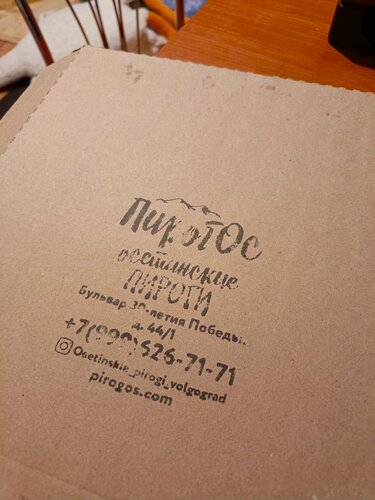 ПирогОс
осетинские
ПИРОГИ
Бульвар 30-летия Победы,
д. 44/1
+7(999)626-71-71
Osetinskie_pirogi_volgograd
pirogos.com